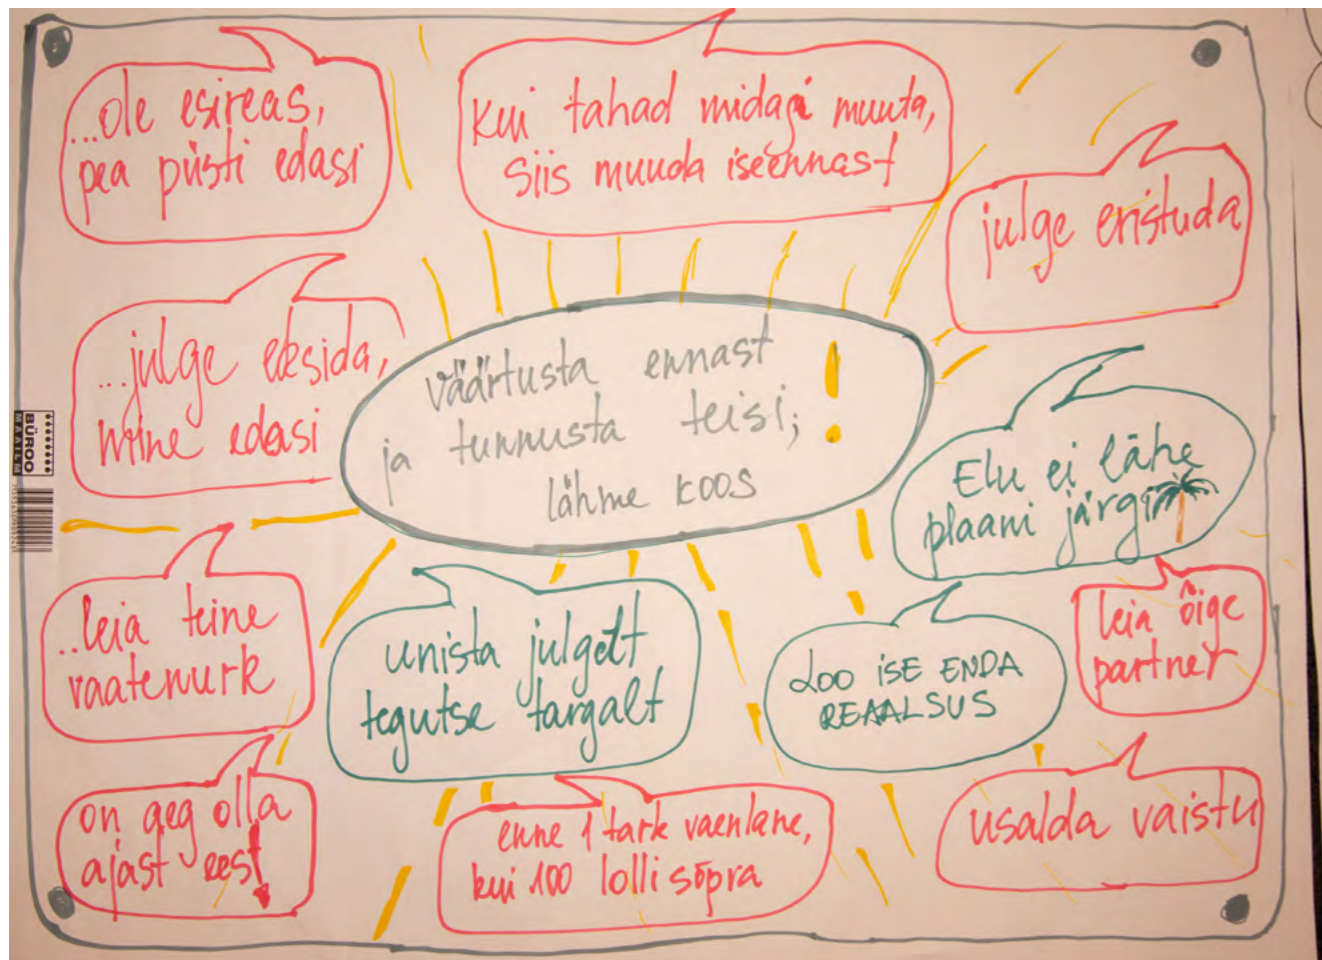 ...ole esireas,
pea püsti edasi
kui tahad midagi muuta,
siis muuda iseennast
julge eristuda
...julge eksida,
mine edasi
väärtusta ennast
ja tunnusta teisi; !
lähme koos
Elu ei lähe
plaani järgi
..leia teine
vaatenurk
unista julgelt
tegutse targalt
LOO ISE ENDA
REAALSUS
leia õige
partner
on aeg olla
ajast eest!
enne 1 tark vaenlane,
kui 100 lolli sõpra
usalda vaistu
BÜROO
MAAILM